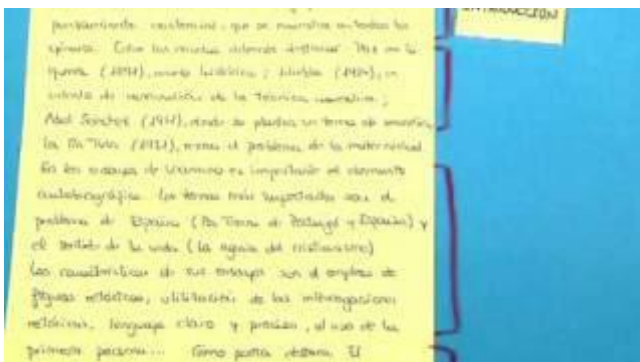 pensamiento existencial, que se muestra en todas las
épocas. Entre las novelas además destacan Paz en la
guerra (1897), novela histórica; Niebla (1914), un
intento de renovación de la técnica narrativa;
Abel Sánchez (1917), donde se plantea un tema de
La Tía Tula (1921), el problema de la maternidad
En los ensayos de Unamuno es importante el elemento
autobiográfico. Los temas más importantes son el
problema de España (Por Tierras de Portugal y España) y
el sentido de la vida (La agonía del cristianismo)
Las características de sus ensayos son el empleo de
figuras retóricas, utilización de las interrogaciones
retóricas, lenguaje claro y preciso, el uso de la
primera persona... Como poeta destaca El
INTRODUCCIÓN